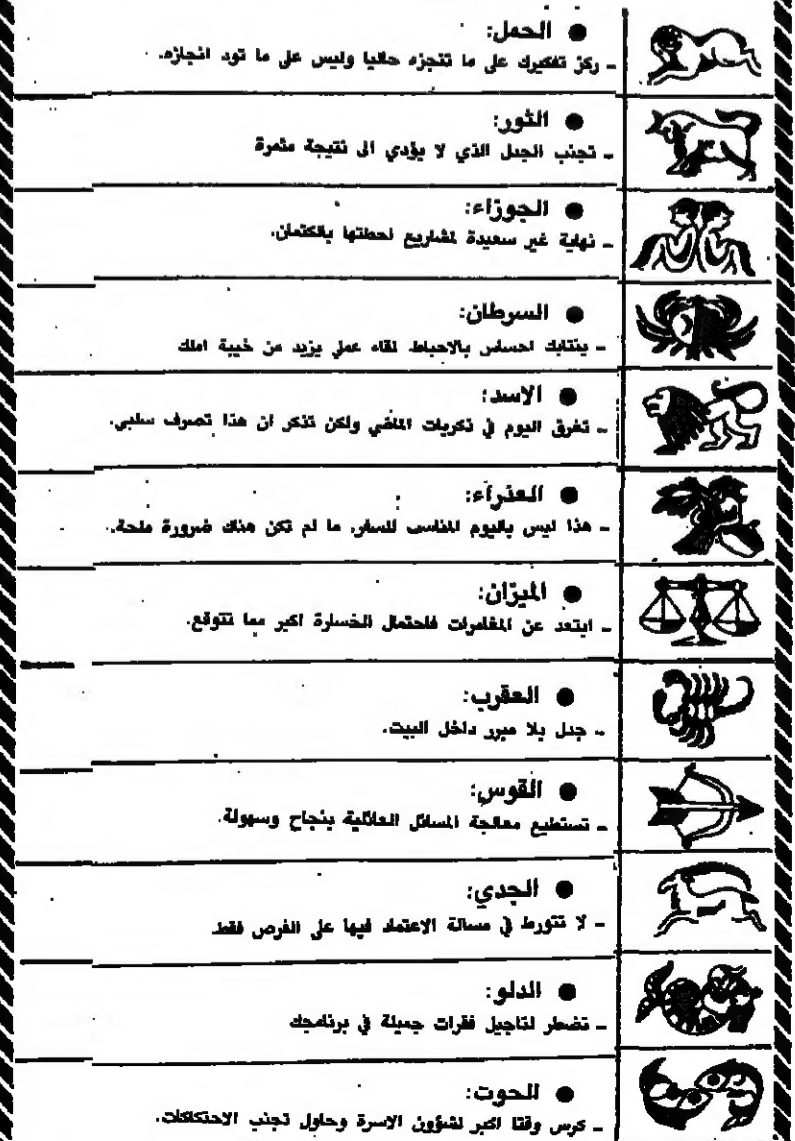 ● الحمل:
ـ ركز تفكيرك على ما تنجزه حاليا وليس على ما تود انجازه.
● الثور:
ـ تجنب الجدل الذي لا يؤدي الى نتيجة مثمرة
● الجوزاء:
ـ نهاية غير سعيدة لمشاريع احطتها بالكتمان.
● السرطان:
ـ ينتابك احساس بالاحباط. لقاء عملي يزيد من خيبة املك
● الاسد:
ـ تغرق اليوم في ذكريات الماضي ولكن تذكر ان هذا تصرف سلبي.
● العذراء:
ـ هذا ليس باليوم المناسب للسفر، ما لم تكن هناك ضرورة ملحة.
● الميزان:
ـ ابتعد عن المغامرات فاحتمال الخسارة اكبر مما تتوقع.
● العقرب:
ـ جدل بلا مبرر داخل البيت.
● القوس:
ـ تستطيع معالجة المسائل العائلية بنجاح وسهولة.
● الجدي:
ـ لا تتورط في مسالة الاعتماد فيها على الفرص فقط.
● الدلو:
ـ تضطر لتاجيل فقرات جميلة في برنامجك
● الحوت:
ـ كرس وقتا اكبر لشؤون الاسرة وحاول تجنب الاحتكاكات.